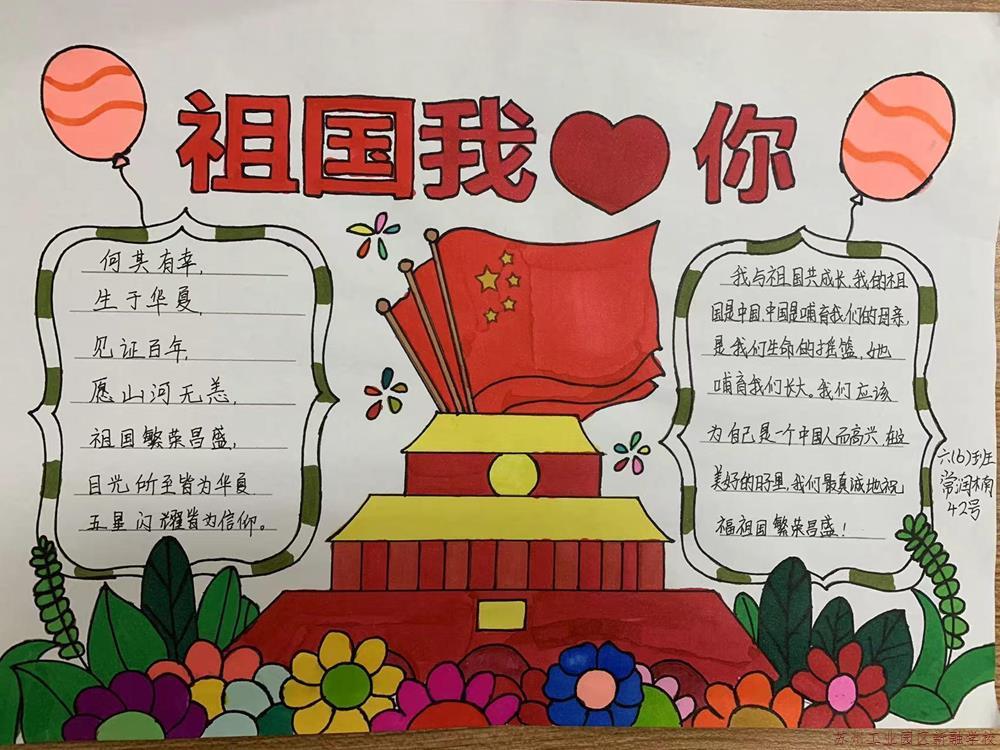 祖国我 你
何其有幸,
生于华夏,
见证百年,
愿山河无恙,
祖国繁荣昌盛,
目光所至皆为华夏
五星闪耀皆为信仰。
我与祖国共成长,我的祖
国是中国,中国是哺育我们的母亲,
是我们生命的摇篮,她
哺育我们长大。我们应该
为自己是一个中国人而高兴,在这
美好的日子里,我们最真诚地祝
福祖国繁荣昌盛!
六(6)班
常润楠
42号
苏州工业园区新融学校